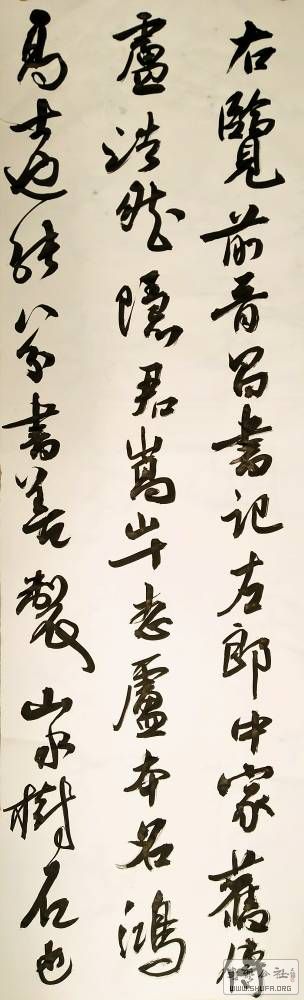 右覽前晉昌書記左郎中家舊傳
盧浩然隱君嵩山十志盧本名鴻
高士也能八分書善製山水樹石也
WWW.SHUFA.ORG